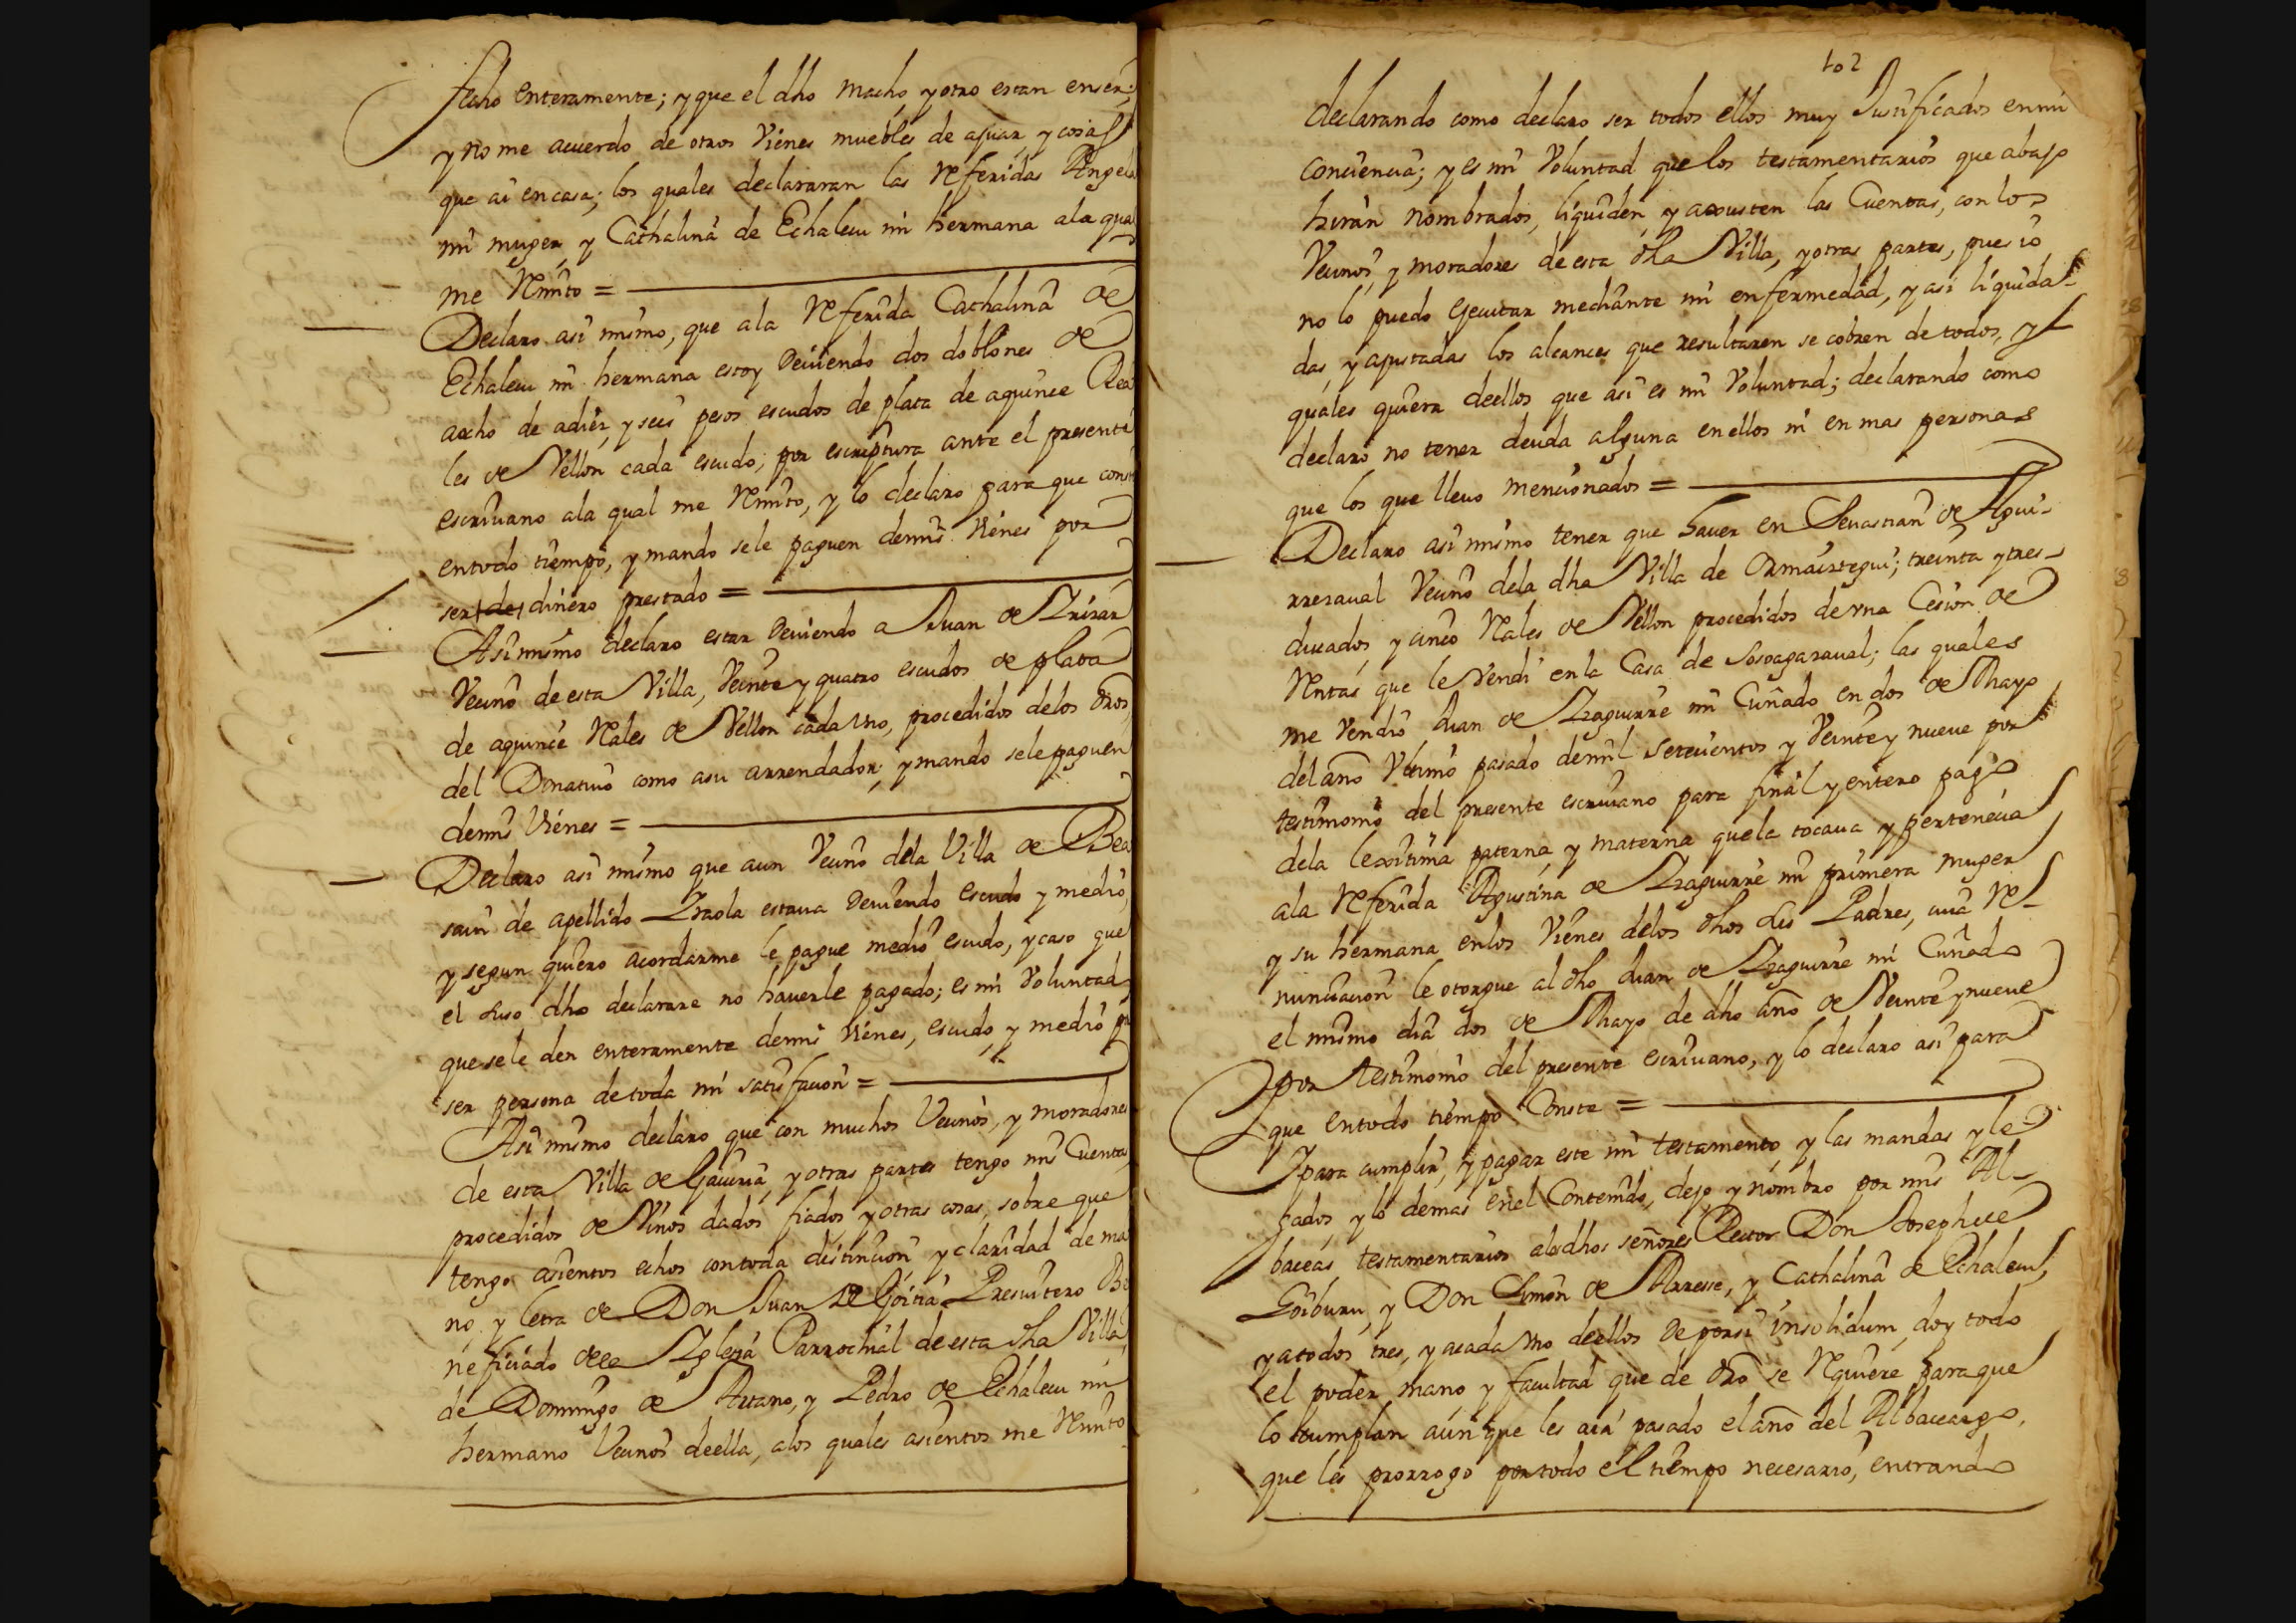 fecho enteramente; y que el dho macho y otro estan en ser;
y no me acuerdo de otros Vienes muebles de ajuar, y cosas
que ai en casa; los quales declararan las Referidas Angela
mi muger, y Cathalina de Echaleu mi hermana ala qual
me Rmito =
Declaro asi mismo, que ala Referida Cathalina de
Echaleu mi hermana estoy deviendo dos doblones de
aocho de adiez, y seis pesos escudos de plata de aquince Rea
les de Vellon cada escudo; por escriptura ante el presente
escrivano ala qual me Rmito, y lo declaro para que conste
entodo tiempo, y mando sele paguen demis Vienes por
ser de dinero prestado =
Asi mismo declaro estar deviendo a Juan de Irizar
Vecino de esta Villa, Veinte y quatro escudos de plata
de aquince Rales de Vellon cada Uno, procedidos delos dros
del Donativo como asu arrendador; y mando sele paguen
demis Vienes =
Declaro asi mismo que aun Vecino dela Villa de Bea
sain de apellido Iraola estava deviendo escudo y medio,
y segun quiero acordarme le pague medio escudo, y caso que
el suso dho declarare no haverle pagado; es mi Voluntad
que sele den enteramente demis Vienes, escudo, y medio por
ser persona de toda mi satisfacion =
Asi mismo declaro que con muchos Vecinos, y moradores
de esta Villa de Gaviria, y otras partes tengo mis Cuentas,
procedidos de Vinos dados fiados y otras cosas, sobre que
tengo asientos echos con toda distincion, y claridad de ma
no y letra de Don Juan de Goitia Presvitero Be
neficiado de la Iglesia Parrochial de esta dha Villa,
de Domingo de Artano, y Pedro de Echaleu mi
hermano Vecinos deella, alos quales asientos me Rmito
102
declarando como declaro ser todos ellos muy Justificados en mi
conciencia; y es mi Voluntad que los testamentarios que abajo
hiran nombrados, liquiden, y axusten las Cuentas, con los
Vecinos, y moradores de esta dha Villa, y otras partes, pues io
no lo puedo ejecutar mediante mi enfermedad, y asi liquida-
das, y ajustadas los alcances que resultaren se cobren de todos, y
quales quiera deellos que asi es mi Voluntad; declarando como
declaro no tener deuda alguna enellos ni en mas personas
que los que llevo mencionados =
Declaro asi mismo tener que haver en Sevastian de Agui-
rresaval Vecino dela dha Villa de Ormaiztegui; treinta y tres
ducados, y cinco Rales de Vellon procedidos de vna Cesion de
Rntas que le Vendi en la Casa de Sosoagaraval; las quales
me Vendio Juan de Izaguirre mi Cuñado en dos de Mayo
del año Vltimo pasado demil setecientos y Veinte y nueve por
testimonio del presente escrivano para final y entero pago
dela lexitima paterna, y materna quela tocava y pertenecia
ala Referida Agustina de Izaguirre mi primera muger
y su hermana enlos Vienes delos dhos sus Padres, cuia Re-
nunciacion le otorgue al dho Juan de Izaguirre mi Cuñado
el mismo dia dos de Mayo de dho año de Veinte y nueve
por testimonio del presente escrivano, y lo declaro asi para
que entodo tiempo Conste =
Y para cumplir, y pagar este mi testamento, y las mandas y le
gados, y lo demas enel Contenido, dejo y nombro por mis Al-
baceas testamentarios alos dhos señores Rector Don Joseph de
Goiburu, y Don Simon de Arresse, y Cathalina de Echaleu,
y a todos tres, y a cada Vno deellos de porsi insolidum, doy todo
el poder, mano, y facultad que de dro se Rquiere para que
lo cumplan aunque les aia pasado el año del Albaceazgo,
que les prorrogo por todo el tiempo necesario, entrando